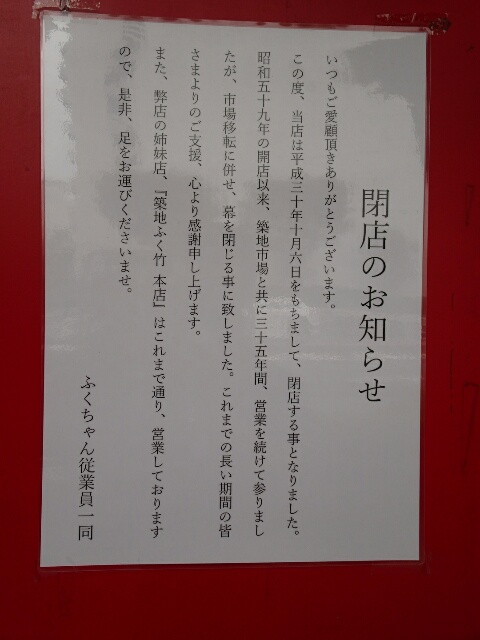 閉店のお知らせ
いつもご愛顧頂きありがとうございます。
この度、当店は平成三十年十月六日をもちまして、閉店する事となりました。
昭和五十九年の開店以来、築地市場と共に三十五年間、営業を続けて参りまし
たが、市場移転に併せ、幕を閉じる事に致しました。これまでの長い期間の皆
さまよりのご支援、心より感謝申し上げます。
また、弊店の姉妹店、『築地ふく竹 本店』はこれまで通り、営業しております
ので、是非、足をお運びくださいませ。
ふくちゃん従業員一同